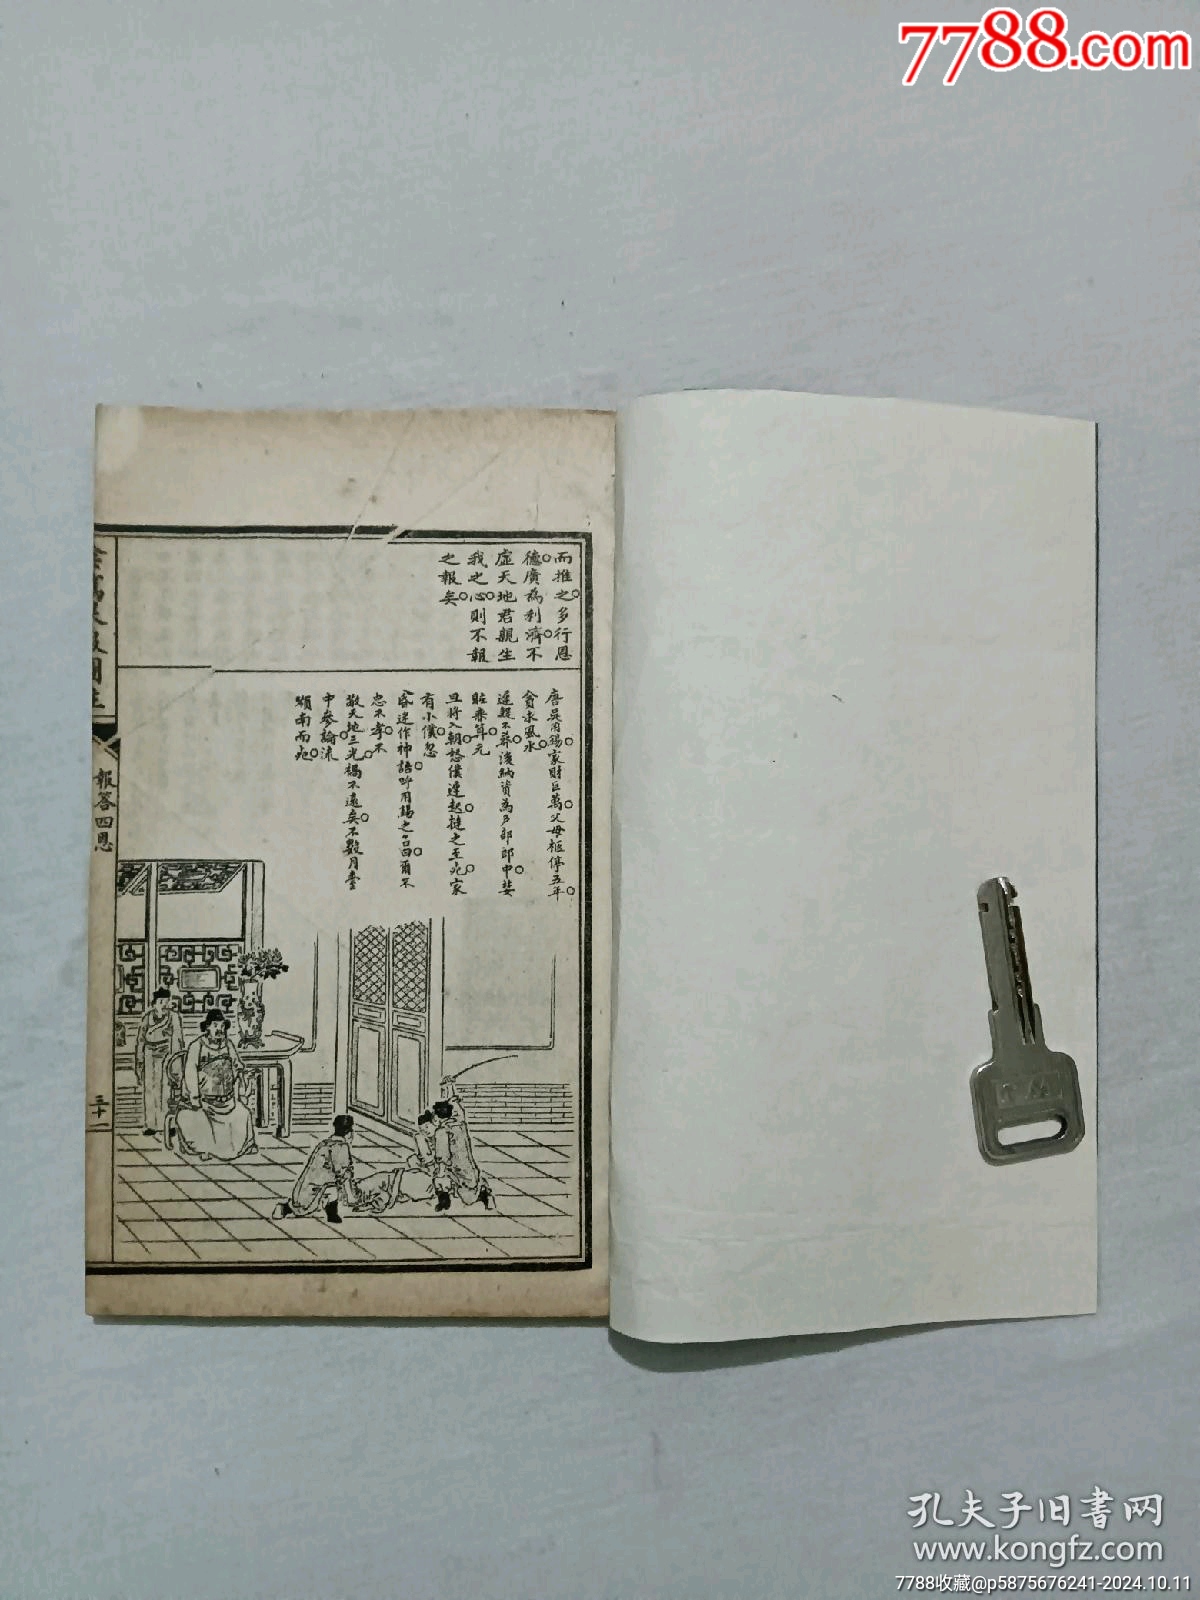 7788.com
而推之多行恩
德廣為利濟不
虛天地君親生
我之心則不報
之報矣
唐吳用錫家財巨萬父母柩停五年
貪求風水
遷延不葬後納資為戶部郎中娶
妓乘耳元
旦將入朝怒僕遲起撻之至死家
有小僕忽
昏迷作神語呼用錫之名曰爾不
忠不孝不
敬天地三光禍不遠矣不數月臺
中參論流
嶺南而死
報答四恩
三十一
孔夫子旧书网
www.kongfz.com
7788收藏@p5875676241-2024.10.11